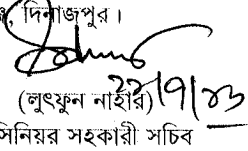 , দিনাজপুর।
(লুৎফুন নাহার)
সিনিয়র সহকারী সচিব